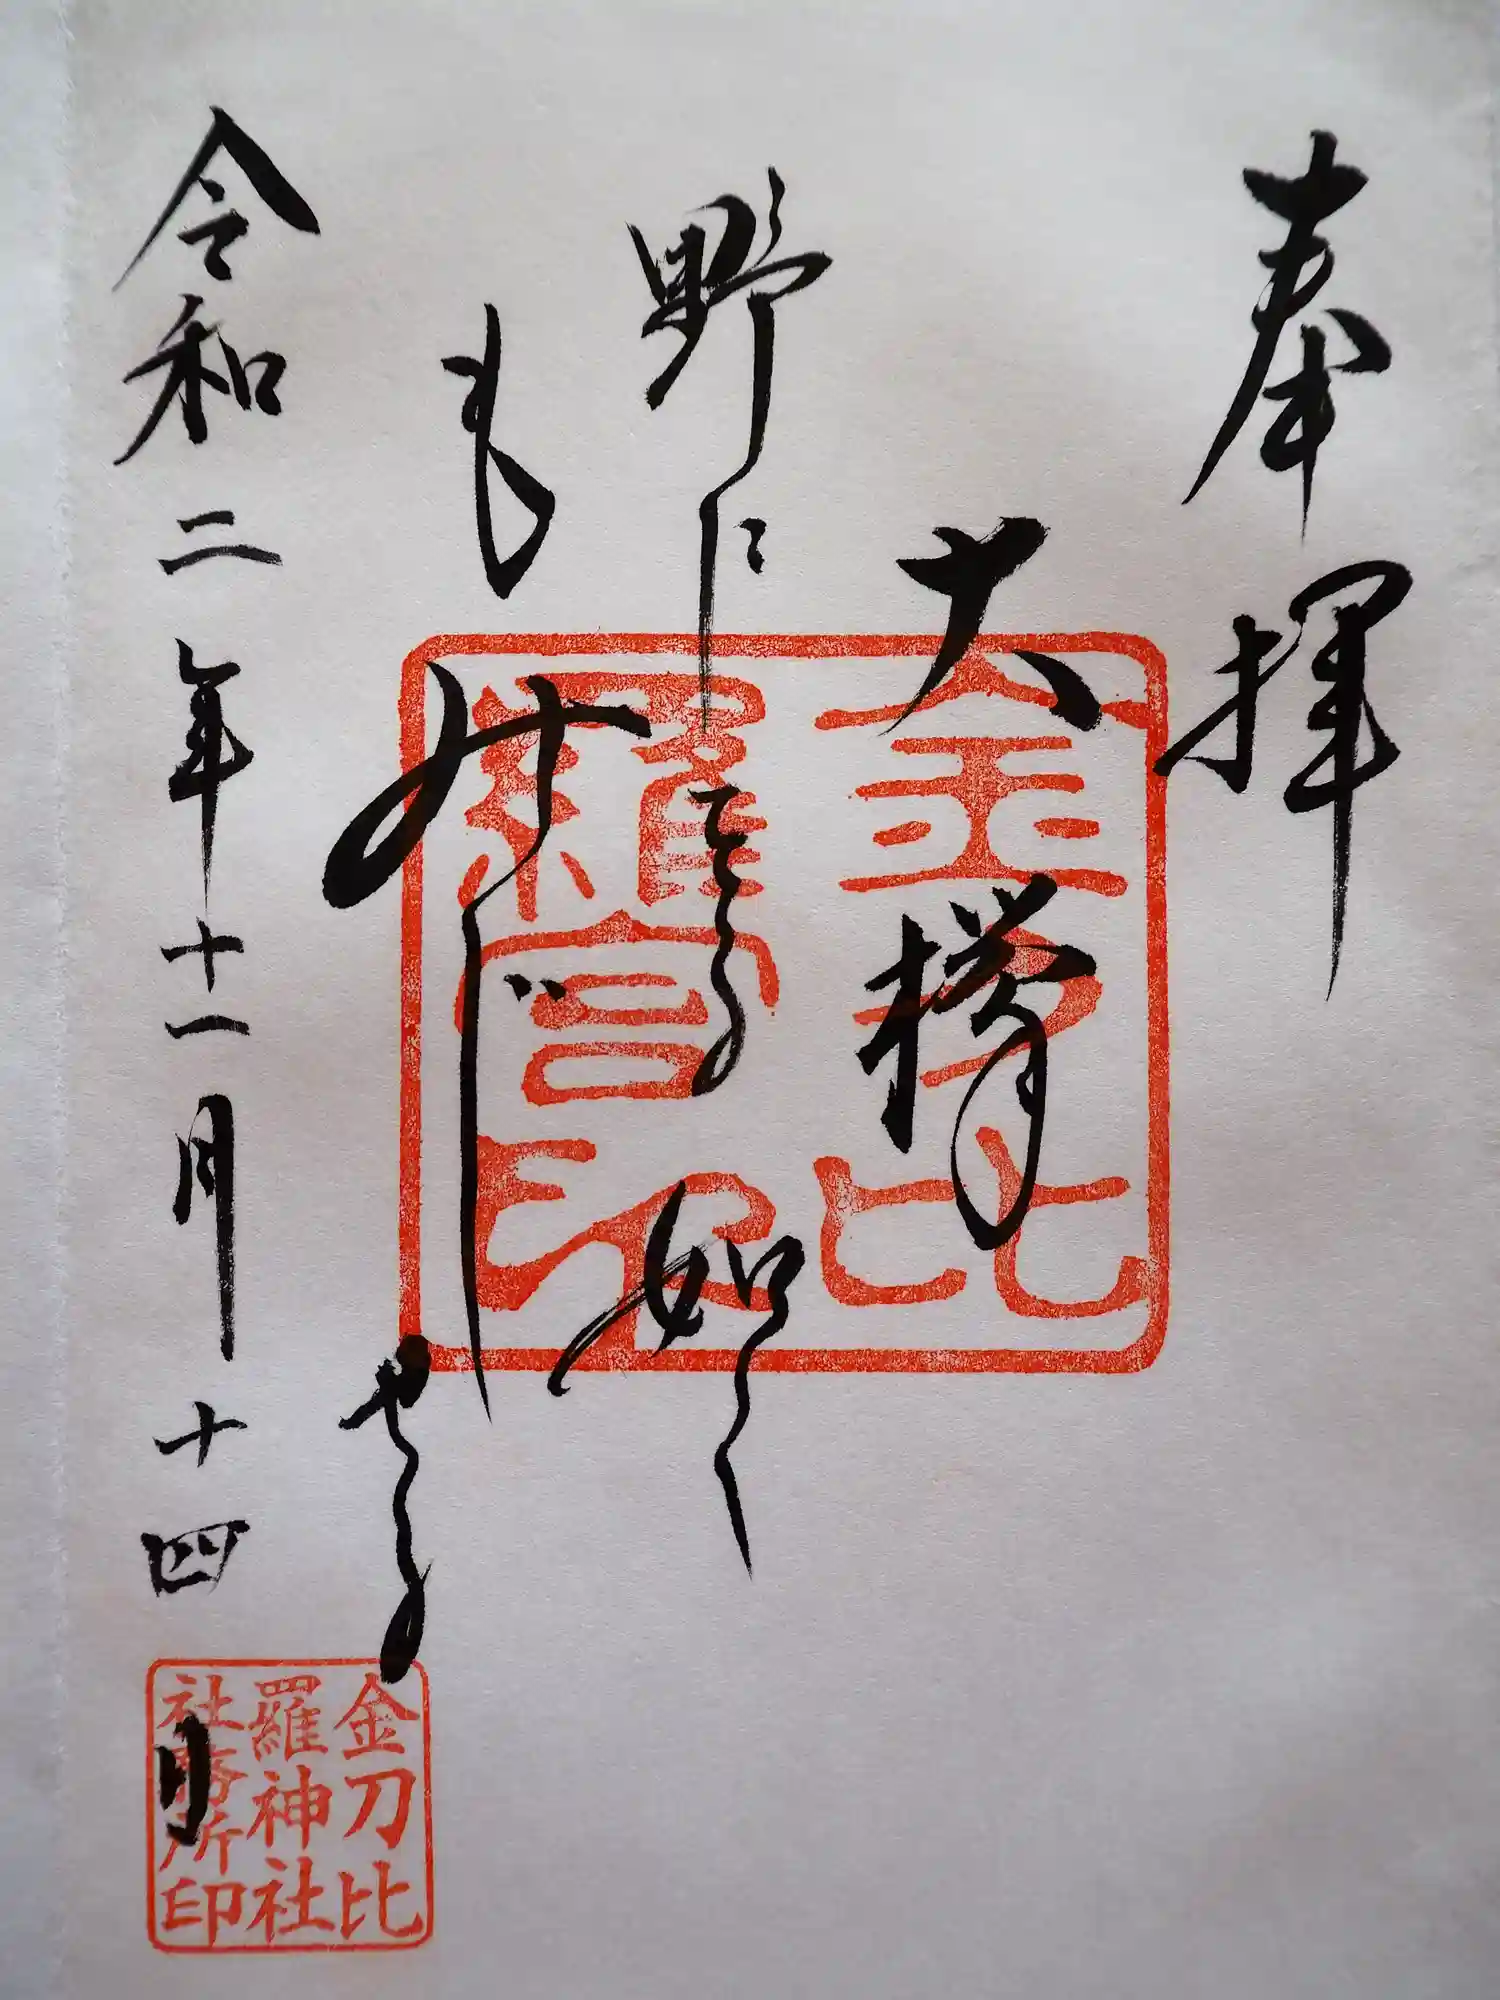 奉拝
大欅
野に 如く
もみじ
令和二年十一月十四日
金刀比
羅宮印
金刀比
羅神社
社務所印